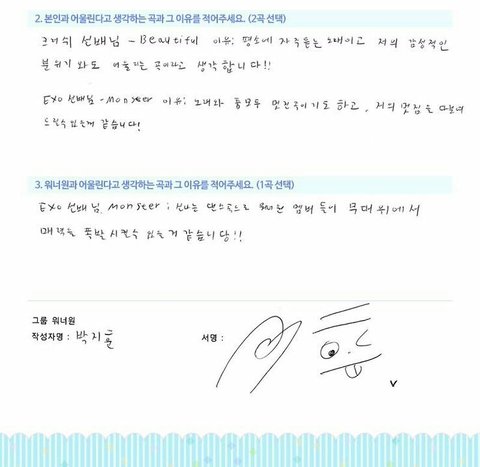 2. 본인과 어울린다고 생각하는 곡과 그 이유를 적어주세요. (2곡 선택)
크러쉬 선배님 - Beautiful 이유: 평소에 자주듣는 노래이고 저의 감성적인
분위기 와도 어울리는 곡이라고 생각 합니다!!
EXO 선배님 - Monster 이유: 노래와 퐁모두 멋진곡이기도 하고, 저의 멋짐을 다보여
드릴수있는거 같습니다!
3. 워너원과 어울린다고 생각하는 곡과 그 이유를 적어주세요. (1곡 선택)
EXO 선배님 Monster : 신나는 댄스곡으로 워너원 멤버 들이 무대 위에서
매력을 폭발 시킬수 있는거 같습니당!!
그룹 워너원
작성자명 : 박지훈
서명 :